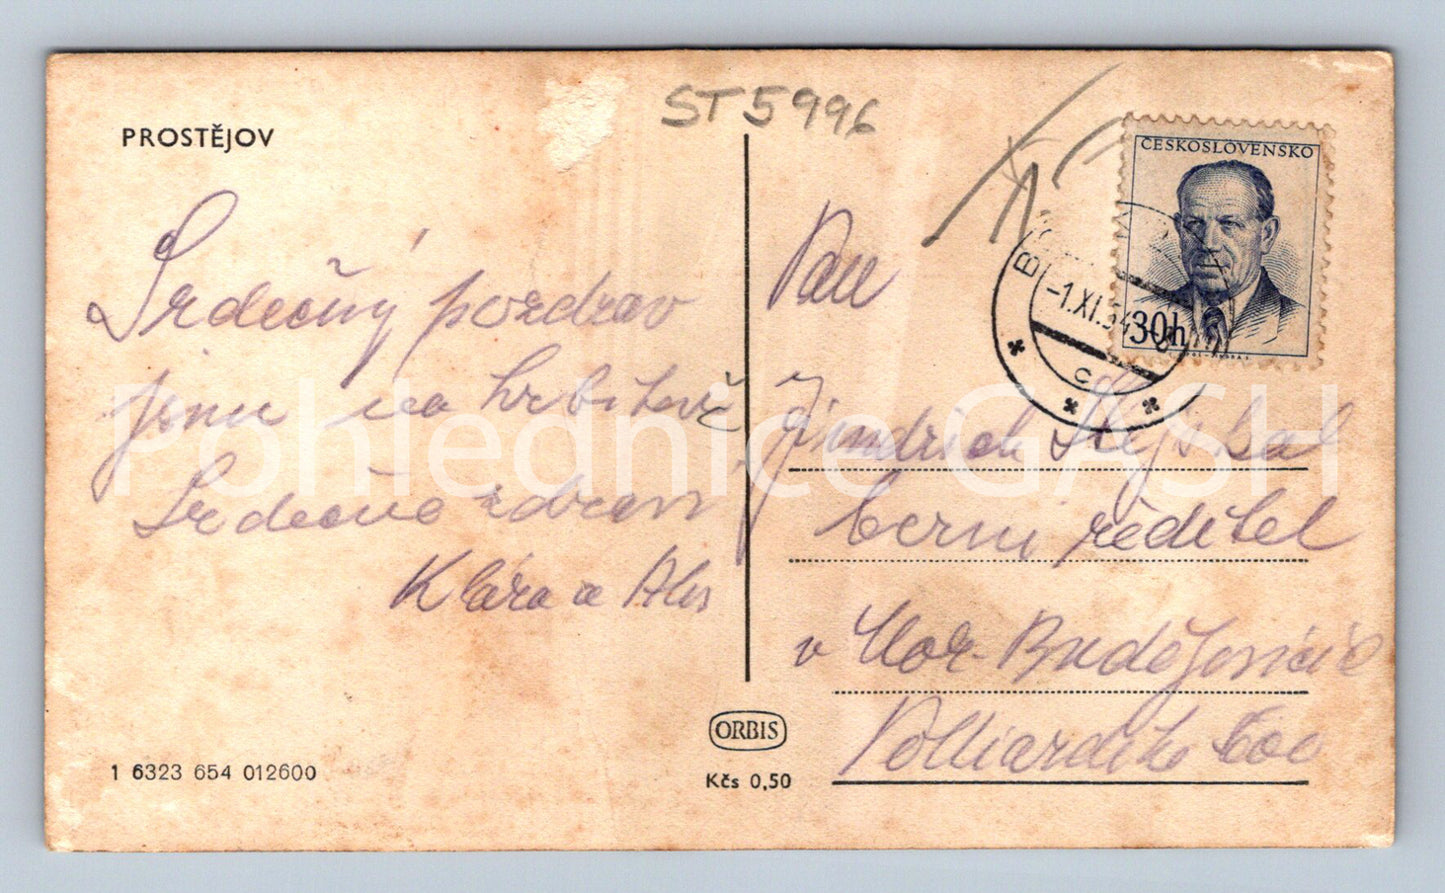 PROSTĚJOV
ST5996
ČESKOSLOVENSKO
30h
-1.XI.54
C
Srdečný pozdrav
jsme na hřbitově
Srdečně zdraví
Klára a Aleš
Pan
Jindřich Stejskal
berní ředitel
v Mor. Budějovicích
ORBIS
Kčs 0,50
1 6323 654 012600
Pohlednice GASH